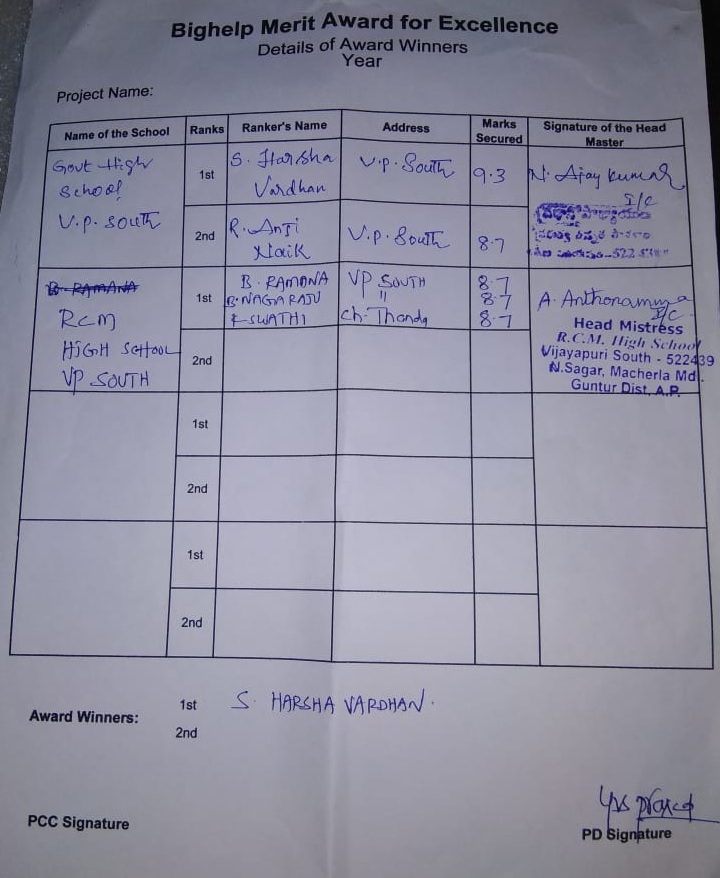 Bighelp Merit Award for Excellence
Details of Award Winners
Year
Project Name:
Name of the School Ranks Ranker's Name Address Marks Secured Signature of the Head Master
Govt High School V.p. South 1st S. Harsha Vardhan V.p. South 9.3 N. Ajay kumar I/c
2nd R. Anji Naik V.p. South 8.7
B. RAMANA
RCM HIGH SCHOOL VP SOUTH 1st B. RAMANA VP SOUTH 8.7 A. Anthonamma I/C
B. NAGARAJU " 8.7
SWATHI Ch. Thanda 8.7
Head Mistress
R.C.M. High School
Vijayapuri South - 522439
N.Sagar, Macherla Md.
Guntur Dist. A.P.
2nd
1st
2nd
1st
2nd
Award Winners: 1st S. HARSHA VARDHAN.
2nd
PCC Signature
PD Signature